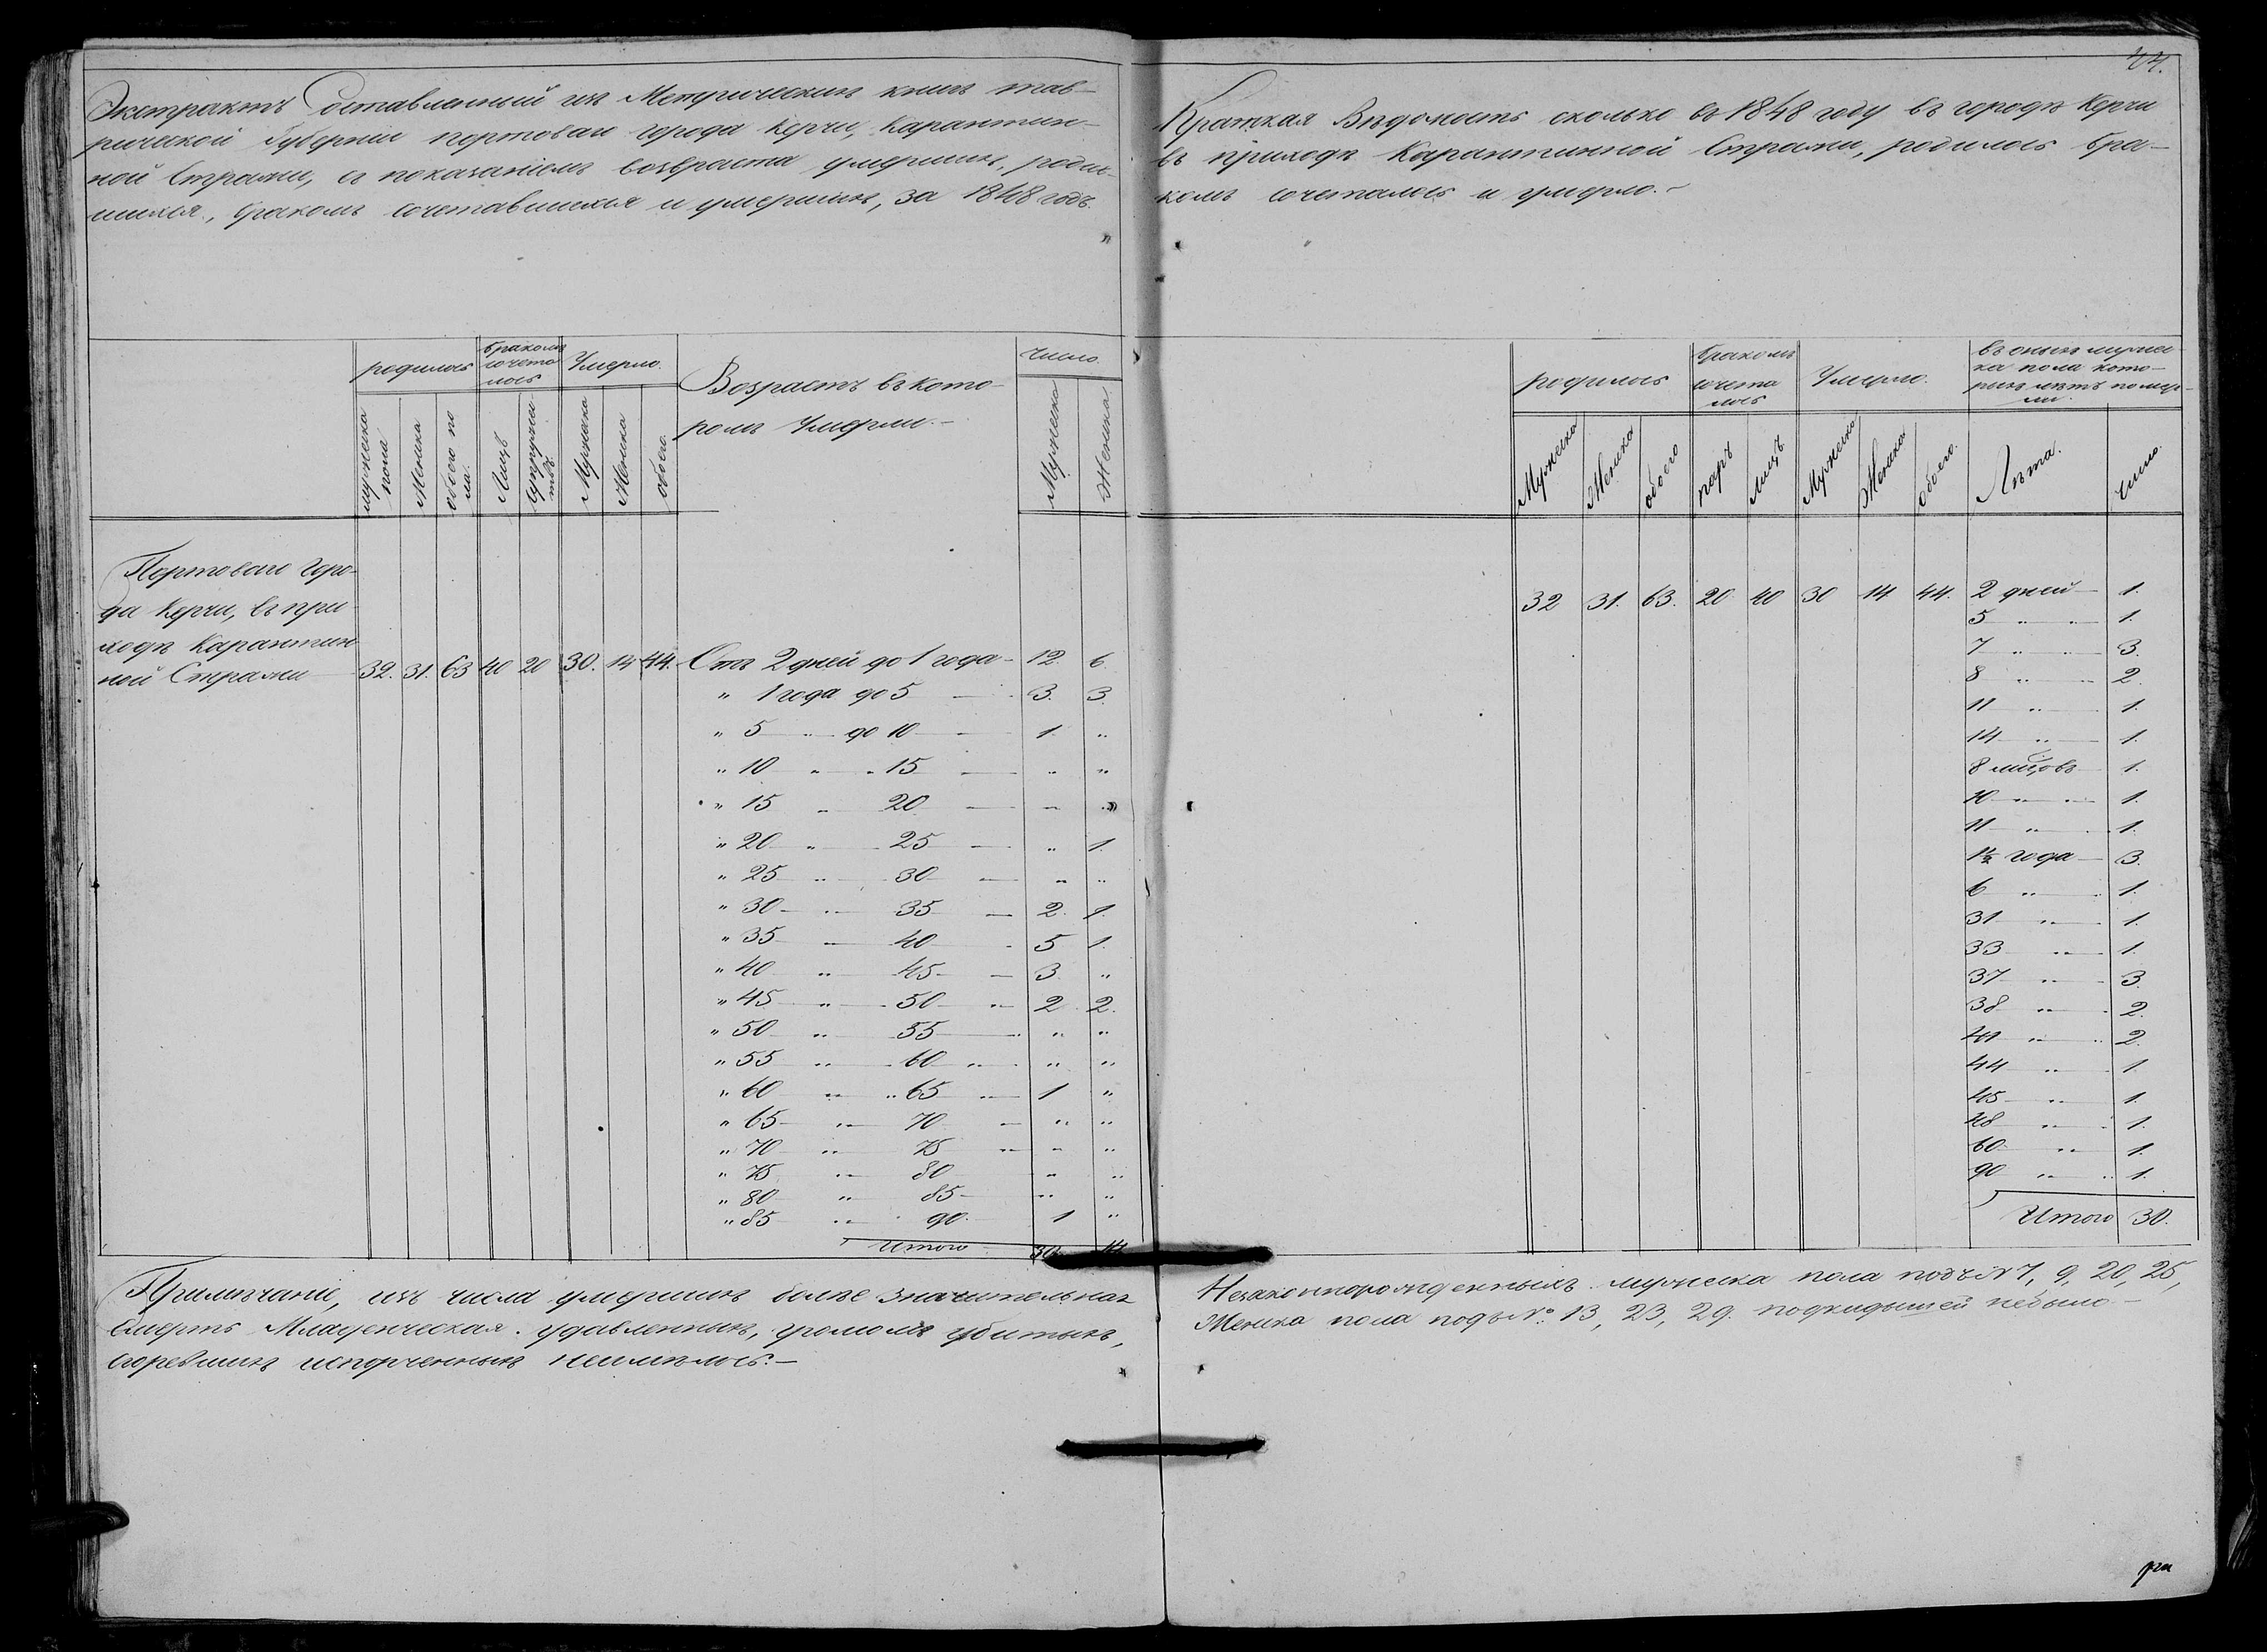 Экстрактъ Составленный изъ Метрическихъ книгъ тав-
рической Губерніи портоваго города Керчи, Карантин-
ной Стражи, съ показаніемъ возвраста умершихъ, родив-
шихся, бракомъ сочетавшихся и умершихъ, за 1848 годъ.
родилось
бракомъ
сочета
лось
Умерло.
Возрастъ въ кото-
ромъ Умерли.-
число.
мужеска пола
Женска
обоего по
ла.
Лицъ
супруже
твъ
Мужеска
Женска
обоего.
Мужеска
Женска
Портоваго Горо-
да Керчи, въ при-
ходѣ Карантин-
ной Стражи 32. 31. 63 40 20 30. 14 44. Отъ 2 дней до 1 года - 12. 6.
" 1 года до 5 - 3. 3.
" 5 " до 10 - 1. "
" 10 " " 15 - " "
" 15 " 20 - " "
" 20 " 25 - " 1.
" 25 " 30 - " "
" 30 " 35 - 2. 1.
" 35 " 40 - 5 1.
" 40 " 45 - 3. "
" 45 " 50 " 2. 2.
" 50 " 55 - " "
" 55 " 60 " " "
" 60 " " 65 " 1 "
" 65 " 70 - " "
" 70 " 75 " " "
" 75 " 80 " "
" 80 " 85 - " "
" 85 " 90. 1 "
Итого 30. 14.
Примѣчаніе, изъ числа умершихъ болѣе значительная
Смерть Младенческая. удавленныхъ, громомъ убитыхъ,
сгоревшихъ испорченныхъ неимѣлось.-
44.
Краткая Вѣдомость сколько въ 1848 году въ городѣ Керчи
въ приходѣ Карантинной Стражи, родилось бра-
комъ сочеталось и умерло.-
родилось
бракомъ
сочета
лось
Умерло.
въ оныхъ мужес
ка пола кото-
рыхъ лѣтъ помер-
ли.
Мужеска
Женска
обоего
паръ
лицъ
Мужеска
Женска
обоего.
Лѣта.
число.
32 31. 63. 20 40 30 14 44. 2 дней - 1.
5 " " 1.
7 " " 3.
8 " " 2.
11 " 1.
14 " 1.
8 мѣсцовъ 1.
10 " " 1.
11 " 1.
1½ года - 3.
6 " 1.
31 " 1.
33 " 1.
37 " 3.
38 " 2.
41 " " 2.
44 " 1.
45 " 1.
48 " 1.
60 " 1.
90 " " 1.
Итого 30.
Незаконнорожденныхъ мужеска пола подъ № 7, 9, 20, 25,
Женска пола подъ №. 13, 23, 29. подкидышей небыло.-